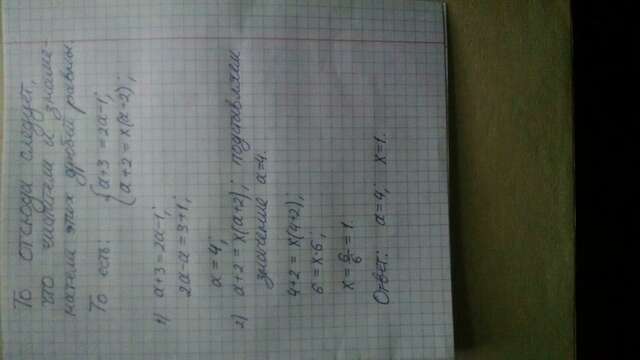 То отсюда следует,
что числители и знаме-
натели этих дробей равны.
То есть: { a+3 = 2a-1;
{ a+2 = x(a-2);
1) a+3 = 2a-1;
2a-a = 3+1;
a = 4;
2) a+2 = x(a+2); подставляем
значение a=4.
4+2 = x(4+2);
6 = x·6;
x = 6/6 = 1.
Ответ: a=4; x=1.